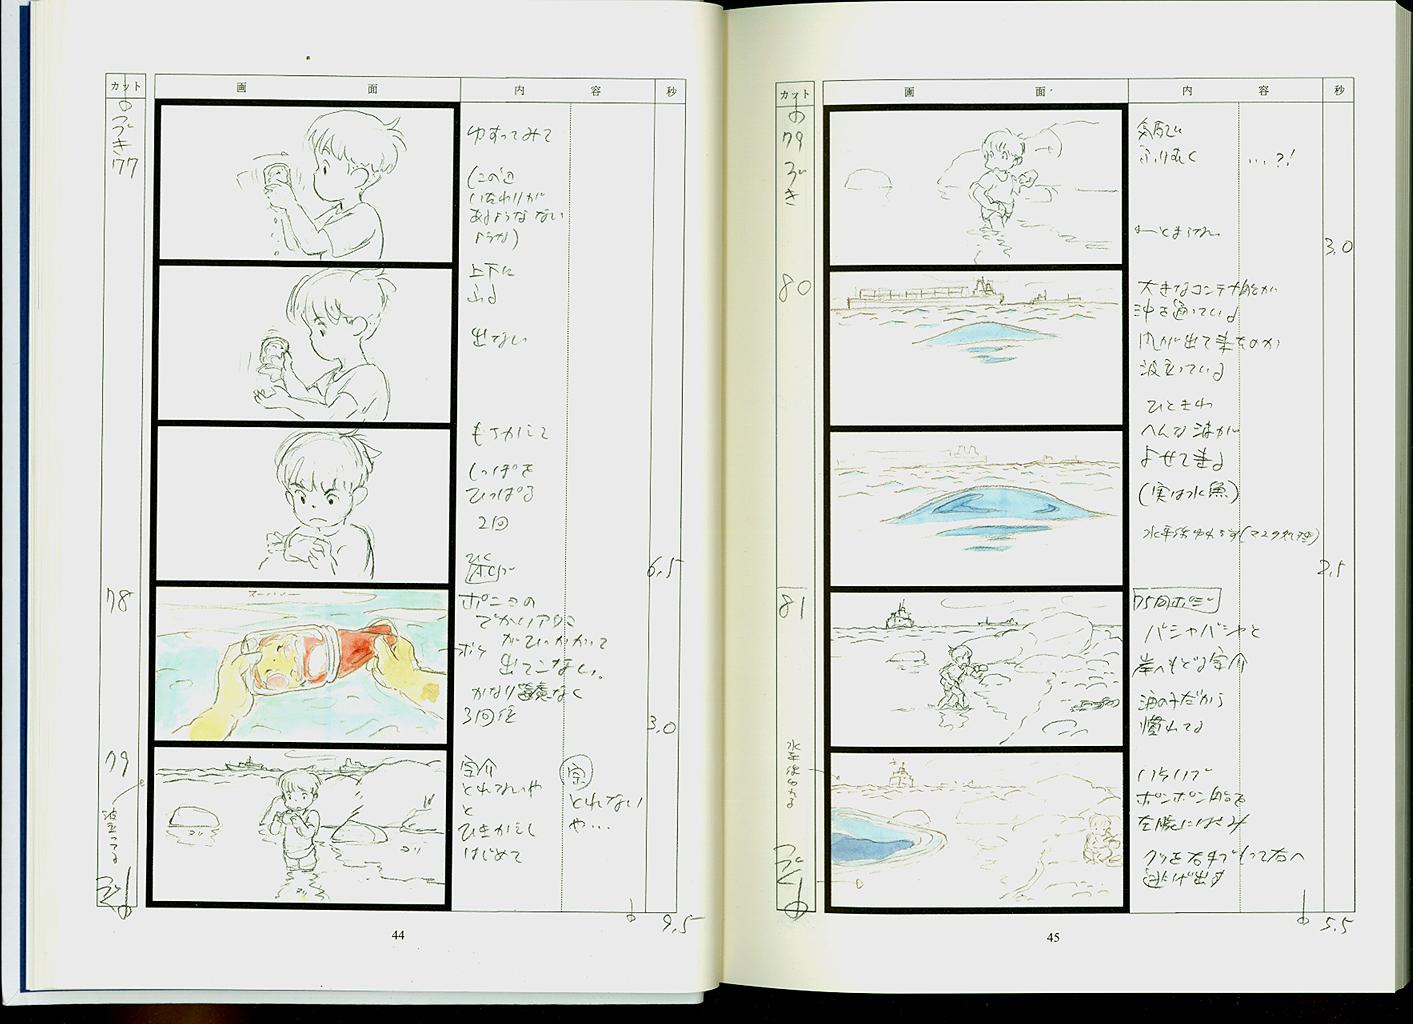 カット 画 面 内 容 秒
つづき
77
ゆすってみて
(この辺
いたわりが
あるような ない
ような)
上下に
ふる
出ない
もちかえて
しっぽを
ひっぱる
2回
6.5
78
スーハー
ポニョの
でかいアタマ
がひっかかって
出てこない。
かなり容赦なく
3回位
3.0
79
波立ってる
宗介
とれないや
と
ひきかえし
はじめて
宗
とれない
や…
つづく
9.5
44
カット 画 面 内 容 秒
79
つづき
気配で
ふりむく
…?!
3.0
80
大きなコンテナ船が
沖を通っている
風が出て来たのか
波立っている
ひときわ
へんな波が
よせて来る
(実は水魚)
2.5
81
75同ポジ
バシャバシャと
岸へもどる宗介
海の子だから
慣れてる
ポンポン船を
左腕にはさみ
クツを右手でもって右へ
逃げ出す
つづく
5.5
45